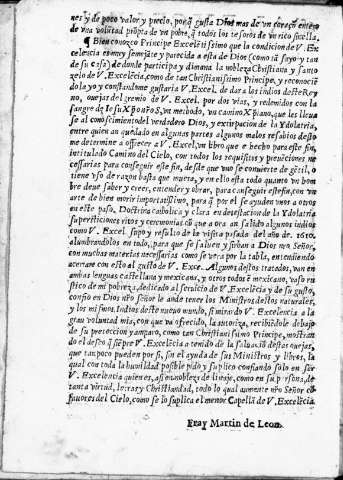 nes y de poco valor y precio, porq̃ gusta Dios mas de vn coraçõ entero
de vna volũtad prõpta de vn pobre, q̃ todos los tesoros de vn rico sin ella.
¶ Bien conozco Principe Excelẽtissimo que la condicion de V. Ex-
celencia es muy semejãte y parecida a esta de Dios (como tã suyo y tan
de su casa) de donde participa y dimana la nobleza Christiana y santo
zelo de V. Excelẽcia, como de tan Christianissimo Principe, y reconociẽ-
dola yo y constandome gustaria V. Excel. de dar a los indios deste Rey
no, ouejas del gremio de V. Excel. por dos vias, y redemidos con la
sangre de Iesu Xp̃o nr̃o S. vn metodo, vn camino Xp̃iano, que les lleua
se al conoscimiento del verdadero Dios, y extirpacion de la Ydolatria,
entre quien an quedado en algunas partes algunos malos resabios desto
me determine a offrecer a V. Excel. vn libro que e hecho para este fin,
intitulado Camino del Cielo, con todos los requisitos y preuẽciones ne
cessarias para conseguir este fin, desde que vno se conuierte de gẽtil, o
tiene vso de razon hasta que muera, y en el se esta todo quanto vn hom
bre deue saber y creer, entender y obrar, para conseguir este fin, con vn
arte de bien morir importantissimo, para q̃ por el se ayuden vnos a otros
en este paso. Doctrina catholica y clara en detestacion de la Ydolatria
supersticiones ritos y ceremonias cõ que a ora an salido algunos indios
como V. Excel. supo y resulto de la visita pasada del año de 1610.
alumbrandolos en todo, para que se saluen y siruan a Dios nr̃o Señor,
con muchas materias necessarias como se vera por la tabla, entendiendo
acertare con esto al gusto de V. Exce. Algunos destos tratados, van en
ambas lenguas castellana y mexicana, y otros todo ẽ mexicano, vaso ru
stico de mi pobreza, dedicado al seruicio de V. Excelẽcia y de su gusto,
confio en Dios nr̃o señor le ande tener los Ministros destos naturales,
y los mismos Indios deste nueuo mundo, si mirado V. Excelencia a la
gran voluntad mia, con que va ofrecido, la autoriza, recibiẽdole debajo
de su proteccion y amparo, como tan Christianissimo Principe, mostran
do el deseo q̃ siẽpre V. Excelẽcia a tenido dẽ la saluaciõ destas ouejas,
que tampoco pueden por si, sin el ayuda de sus Ministros y libros, la
qual con toda la humildad posible pido y suplico confiando solo en ser
V. Excelencia quien es, assi en nobleza de linaje, como en su persona, de
tanta virtud, letras y Christiandad, todo lo qual aumente nr̃o Señor cõ
fauores del Cielo, como se lo suplica el menor Capellã de V. Excelẽcia.
Fray Martin de Leon.